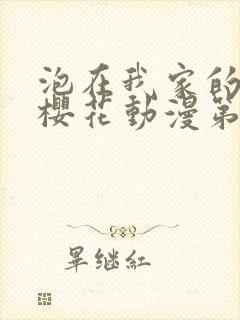 泡在我家的
櫻花動漫第
畢继紅